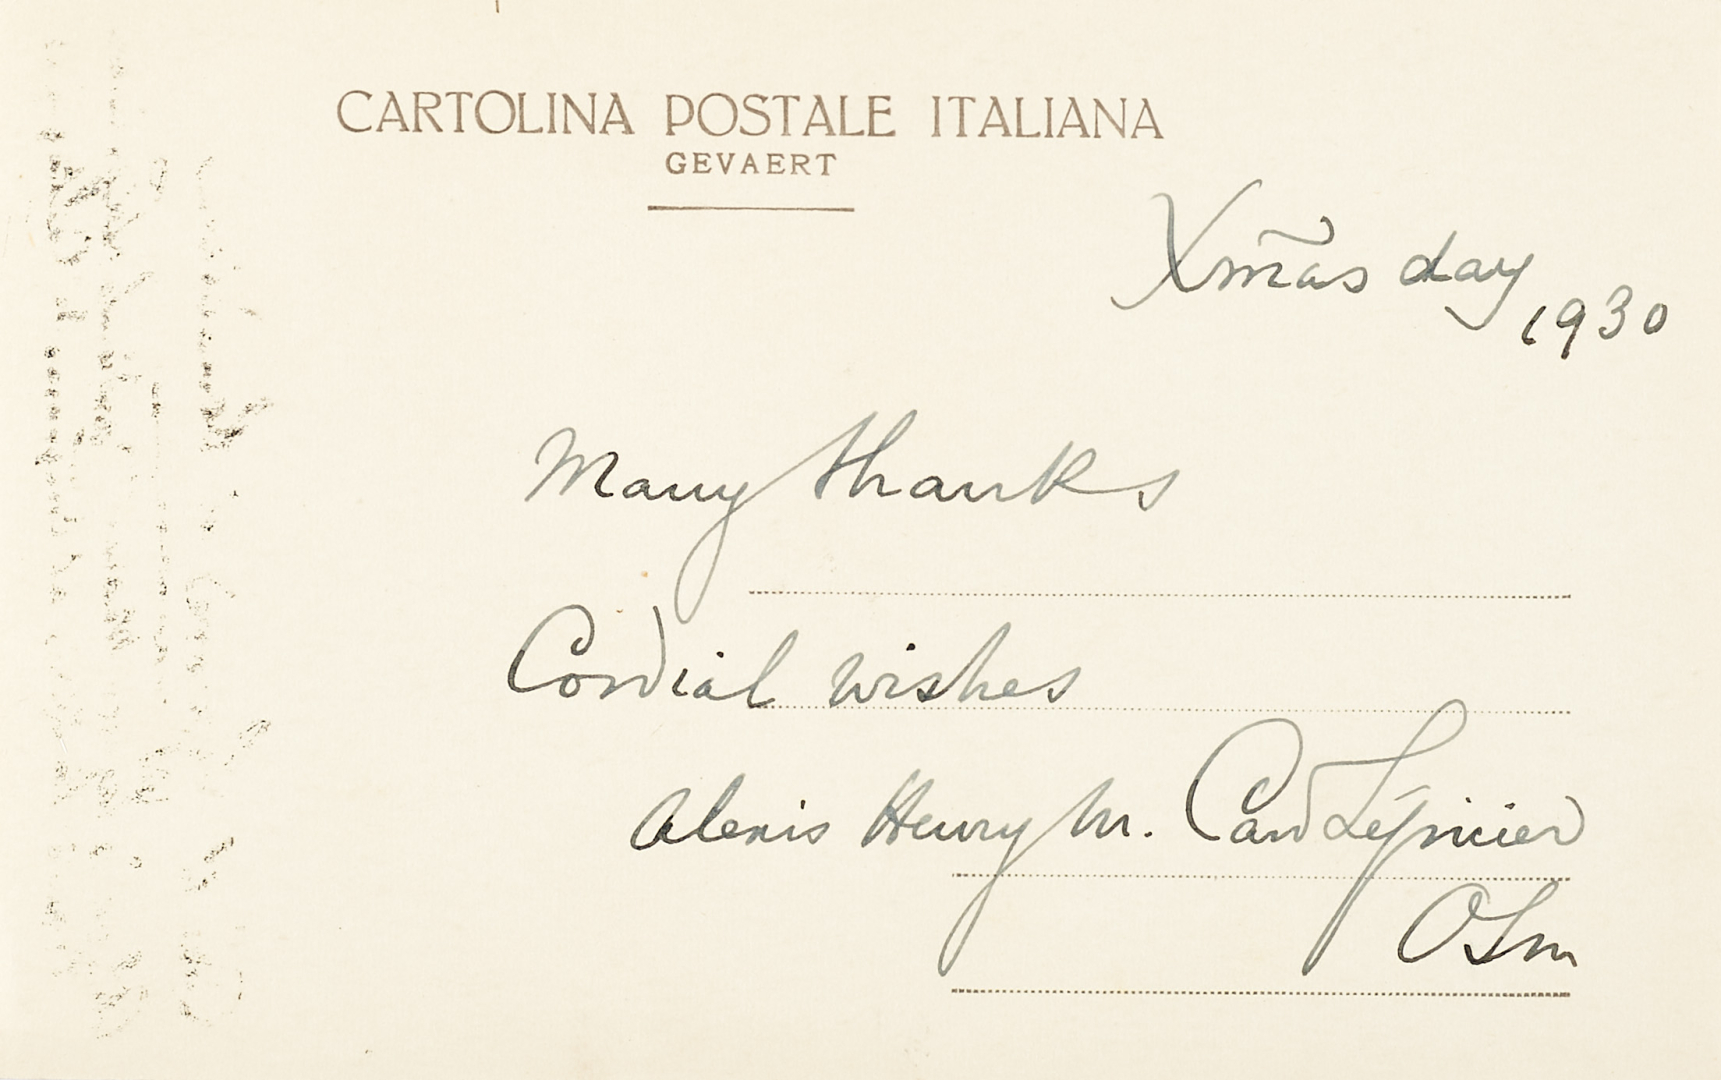 CARTOLINA POSTALE ITALIANA
GEVAERT
Xmas day
1930
Many thanks
Cordial wishes
Alexis Henry M. Card Lépicier
OSM